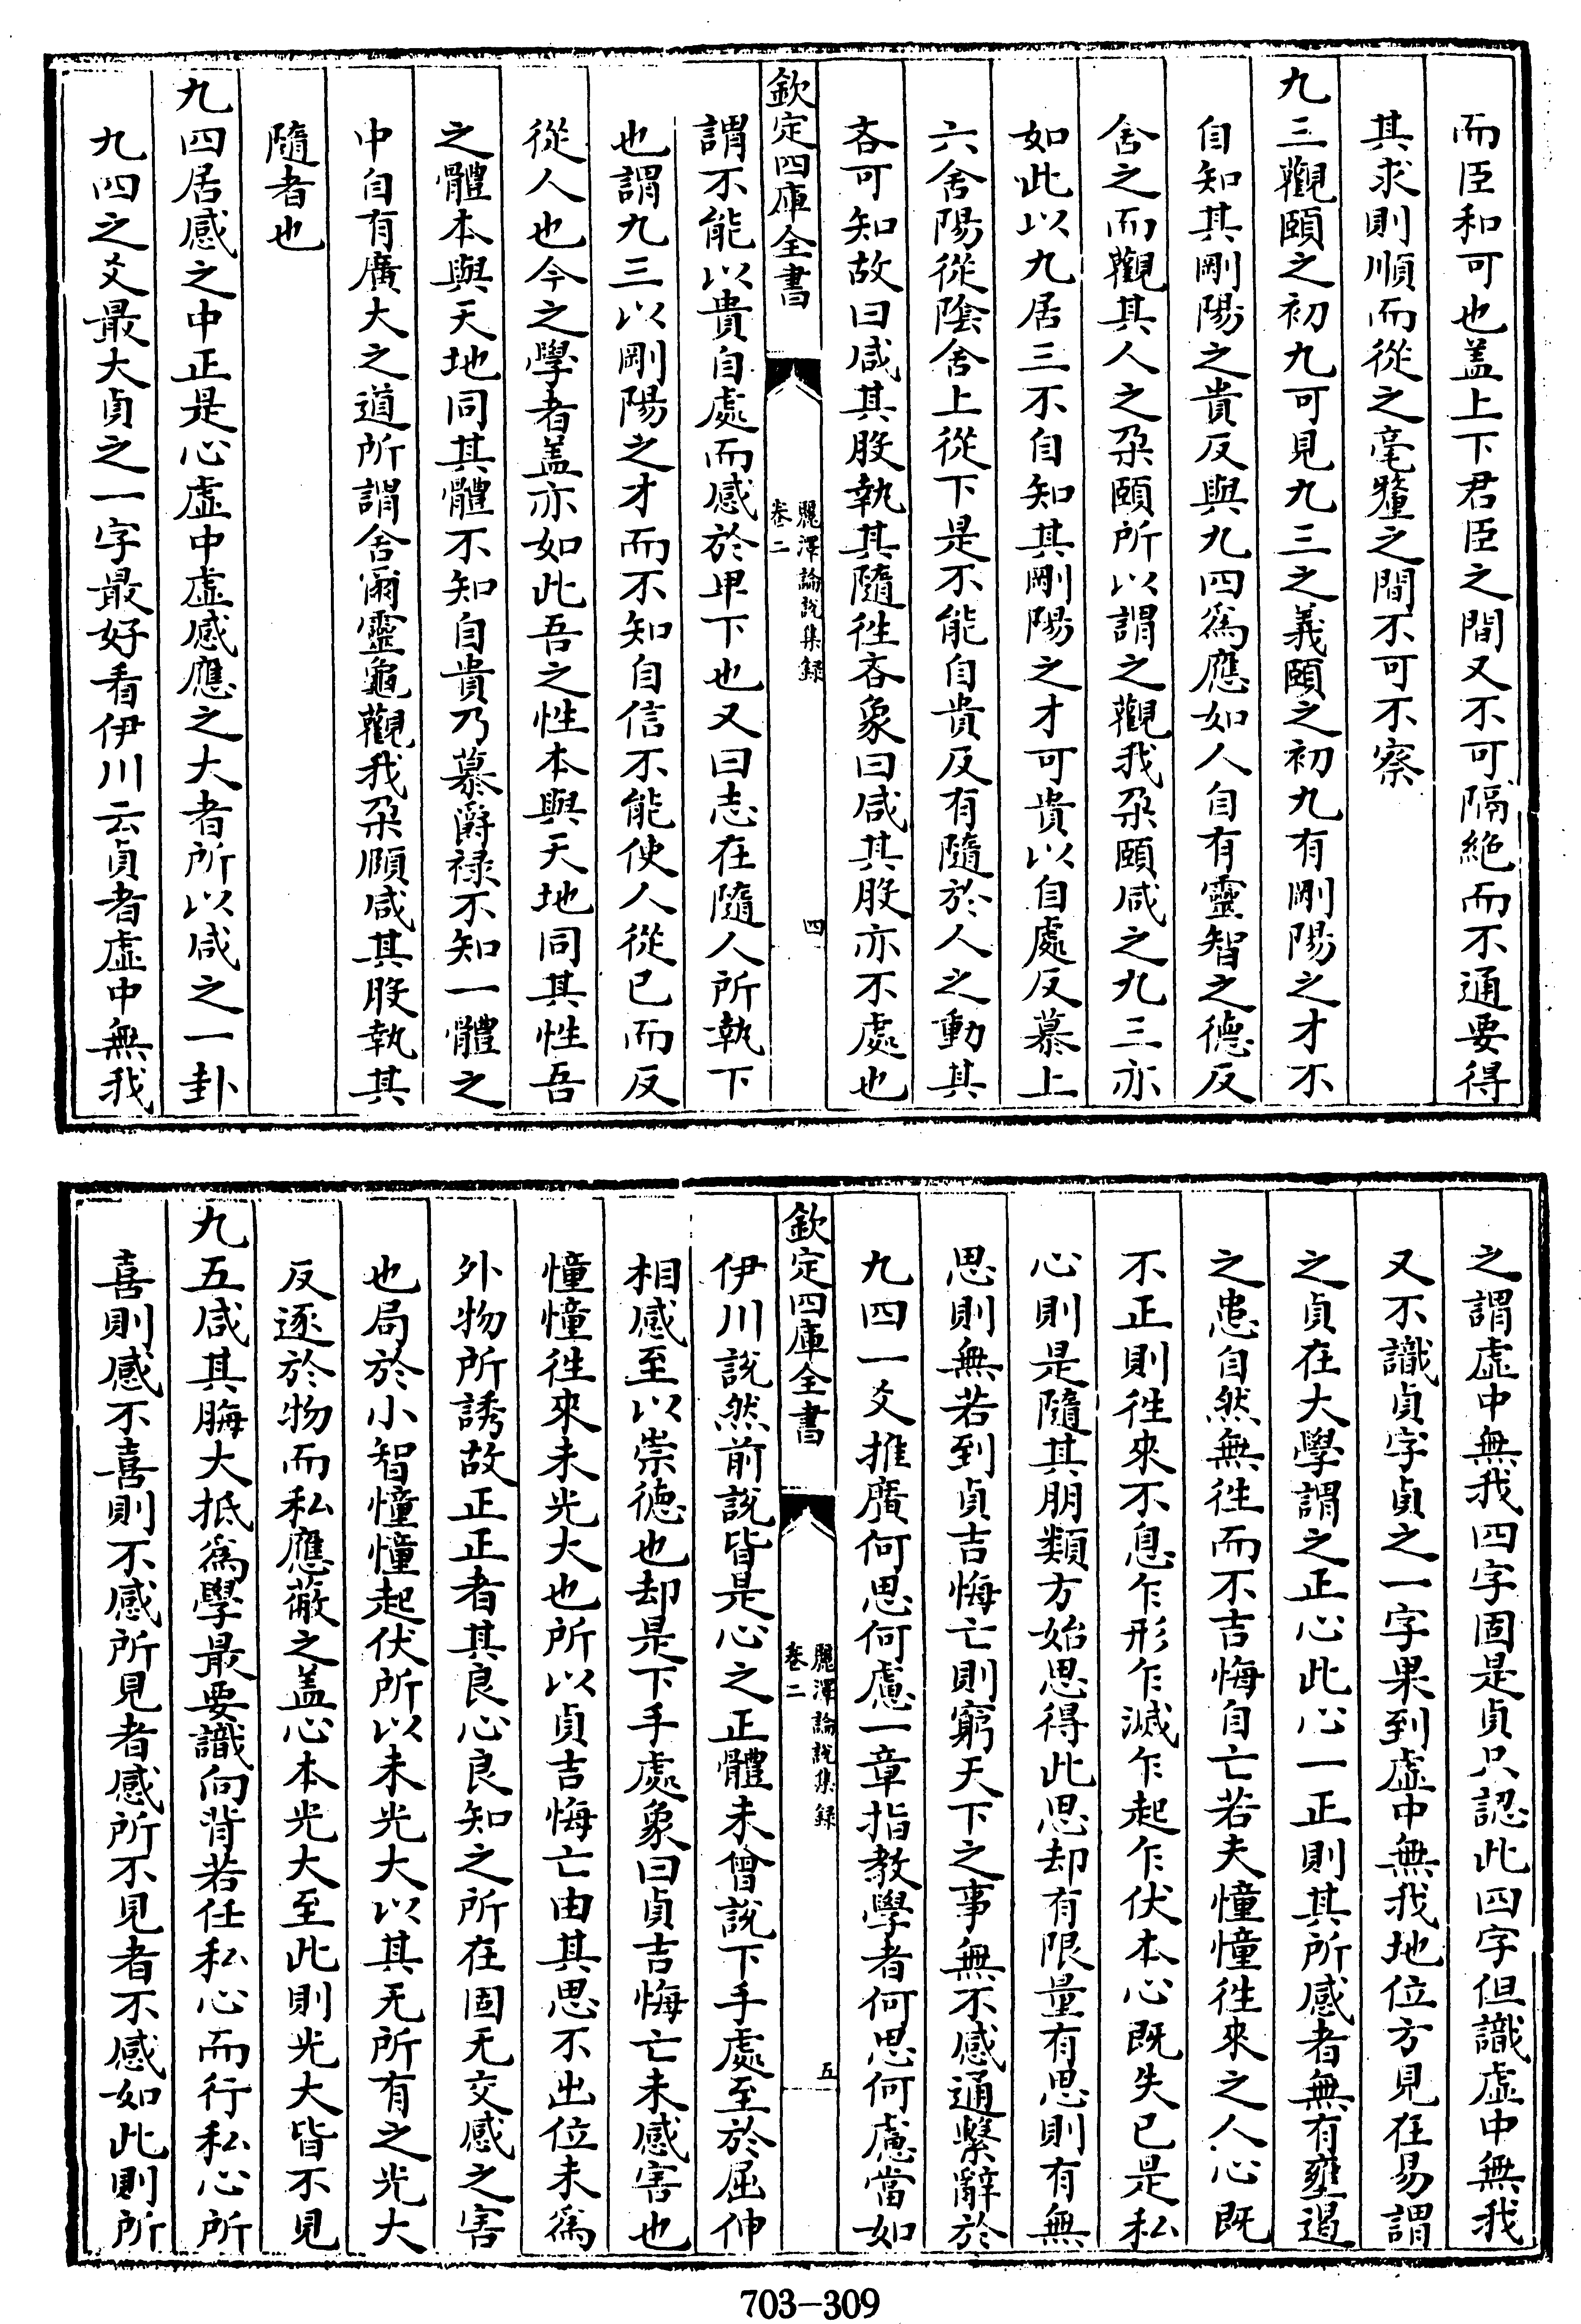 而臣和可也盖上下君臣之間又不可隔絶而不通要得
其求則順而從之毫釐之間不可不察
九三觀頤之初九可見九三之義頤之初九有剛陽之才不
自知其剛陽之貴反與九四爲應如人自有靈智之德反
舍之而觀其人之朶頤所以謂之觀我朶頤咸之九三亦
如此以九居三不自知其剛陽之才可貴以自處反慕上
六舍陽從陰舍上從下是不能自貴反有隨於人之動其
吝可知故曰咸其股執其隨徃吝象曰咸其股亦不處也
欽定四庫全書
麗澤論說集録
卷二
四
謂不能以貴自處而感於卑下也又曰志在隨人所執下
也謂九三以剛陽之才而不知自信不能使人從已而反
從人也今之學者盖亦如此吾之性本與天地同其性吾
之體本與天地同其體不知自貴乃慕爵禄不知一體之
中自有廣大之道所謂舍爾靈龜觀我朶頤咸其股執其
隨者也
九四居感之中正是心虛中虛感應之大者所以咸之一卦
九四之爻最大貞之一字最好看伊川云貞者虛中無我
之謂虛中無我四字固是貞只認此四字但識虛中無我
又不識貞字貞之一字果到虛中無我地位方見在易謂
之貞在大學謂之正心此心一正則其所感者無有壅遏
之患自然無徃而不吉悔自亡若夫憧憧徃來之人心既
不正則徃來不息乍形乍滅乍起乍伏本心既失已是私
心則是隨其朋類方始思得此思却有限量有思則有無
思則無若到貞吉悔亡則窮天下之事無不感通繫辭於
九四一爻推廣何思何慮一章指教學者何思何慮當如
欽定四庫全書
麗澤論說集録
卷二
五
伊川說然前說皆是心之正體未曾說下手處至於屈伸
相感至以崇德也却是下手處象曰貞吉悔亡未感害也
憧憧徃來未光大也所以貞吉悔亡由其思不出位未爲
外物所誘故正正者其良心良知之所在固无交感之害
也局於小智憧憧起伏所以未光大以其无所有之光大
反逐於物而私應蔽之盖心本光大至此則光大皆不見
九五咸其脢大抵爲學最要識向背若任私心而行私心所
喜則感不喜則不感所見者感所不見者不感如此則所
703-309